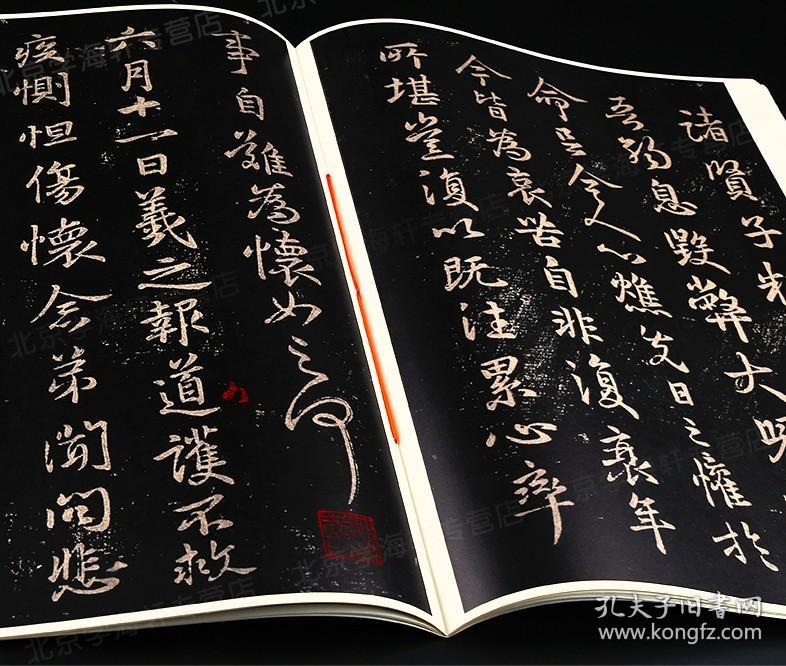 諸賢子
吾弱息毀弊大明
命令人心燋发日之懽於
今皆為哀苦自非復衰年
所堪豈復以既往累心率
事自難為懷如之何
六月十一日羲之報道護不救
疾惻怛傷懷念弟聞問悲
孔夫子旧书网
www.kongfz.com
北京学海轩专营店